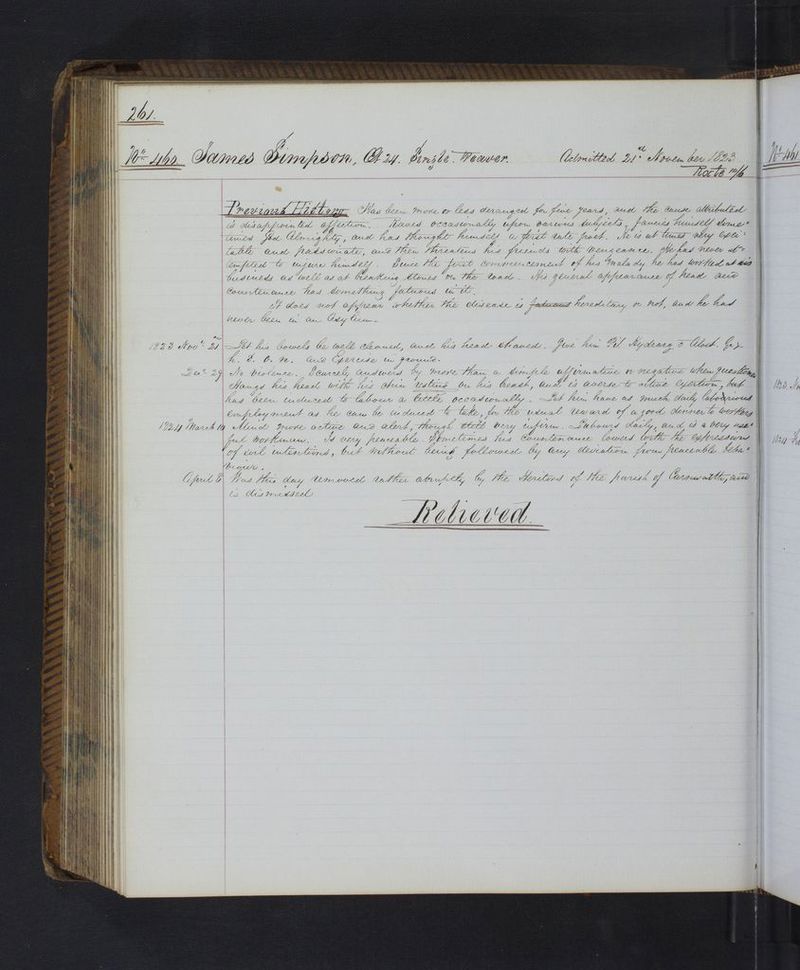 261.
No. 460 James Simpson, Æt 24. Single. Weaver. Admitted 21st November 1823
Rate 10/6
No. 461
Previous History Has been more or less deranged for five years, and the cause attributed
is disappointed affection. Raves occasionally upon various subjects, fancies himself some-
times God Almighty, and has thought himself a first rate poet. He is at times very exci-
table and passionate, and then threatens his friends with vengeance. He has never at-
tempted to injure himself. Since the first commencement of his malady he has worked at his
business as well as at breaking stones on the road. His general appearance of head and
countenance has something fatuous in it.
It does not appear whether the disease is fatuous hereditary or not, and he has
never been in an asylum.
1823 Novr. 21 Let his bowels be well cleaned, and his head shaved. Give him Pil Hydrarg c Aloes. Gr. x
h. s. o. n. and Exercise in grounds.
Decr. 29 No violence. Scarcely answers by more than a simple affirmative or negative when questioned
Hangs his head with his chin resting on his breast, and is averse to active exertion, but
has been induced to labour a little occasionally. Let him have as much daily laborious
employment as he can be induced to take, for the usual reward of a good dinner to workers
1824 March 14 Mind more active and alert, though still very infirm. Labours daily, and is a very use-
ful workman. Is very peaceable. Sometimes his countenance lowers with the expressions
of evil intentions, but without being followed by any deviation from peaceable beha-
viour.
April 6 Was this day removed rather abruptly by the Heritors of the parish of Carnwath, and
is dismissed
Relieved.